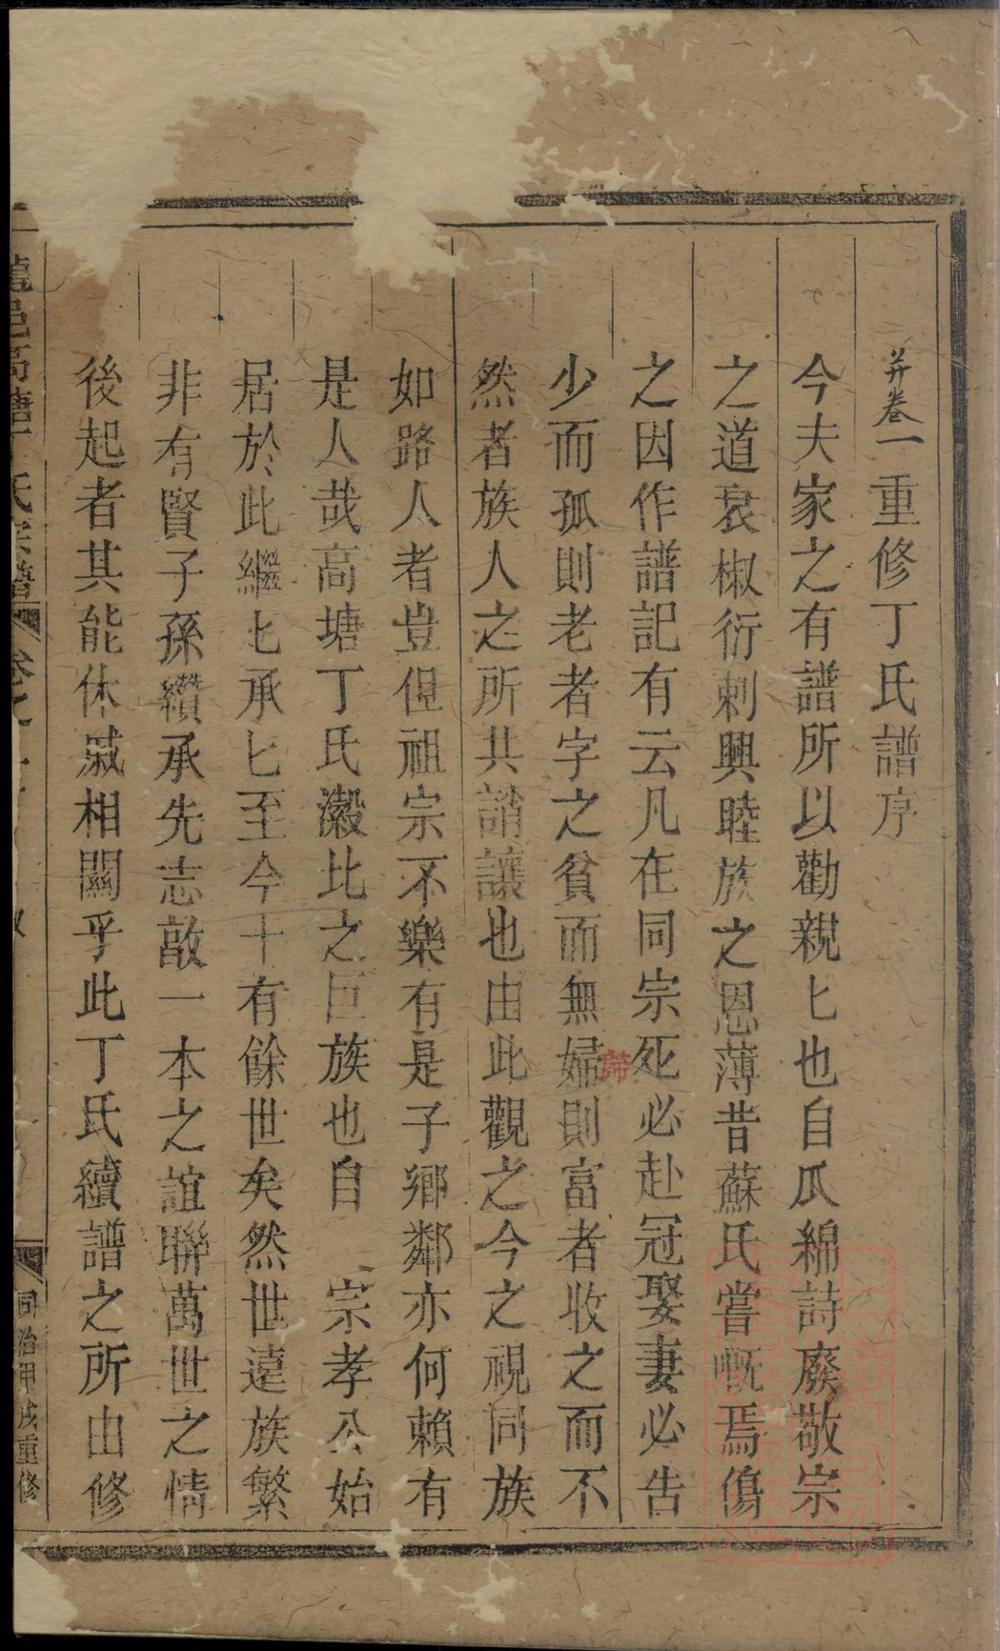 弁卷一重修丁氏譜序
今夫家之有譜所以勸親匕也自瓜綿詩廢敬宗
之道衰椒衍刺興睦族之恩薄昔蘇氏嘗慨焉傷
之因作譜記有云凡在同宗死必赴冠娶妻必告
少而孤則老者字之貧而無婦則富者收之而不
歸
然者族人之所共誚讓也由此觀之今之視同族
如路人者豈但祖宗不樂有是子鄉鄰亦何賴有
是人哉高塘丁氏瀫北之巨族也自 宗孝公始
居於此繼匕承匕至今十有餘世矣然世遠族繁
非有賢子孫纘承先志敵一本之誼聯萬世之情
後起者其能休戚相關乎此丁氏續譜之所由修
龍邑高塘丁氏宗譜 卷之一
同治甲戌重修